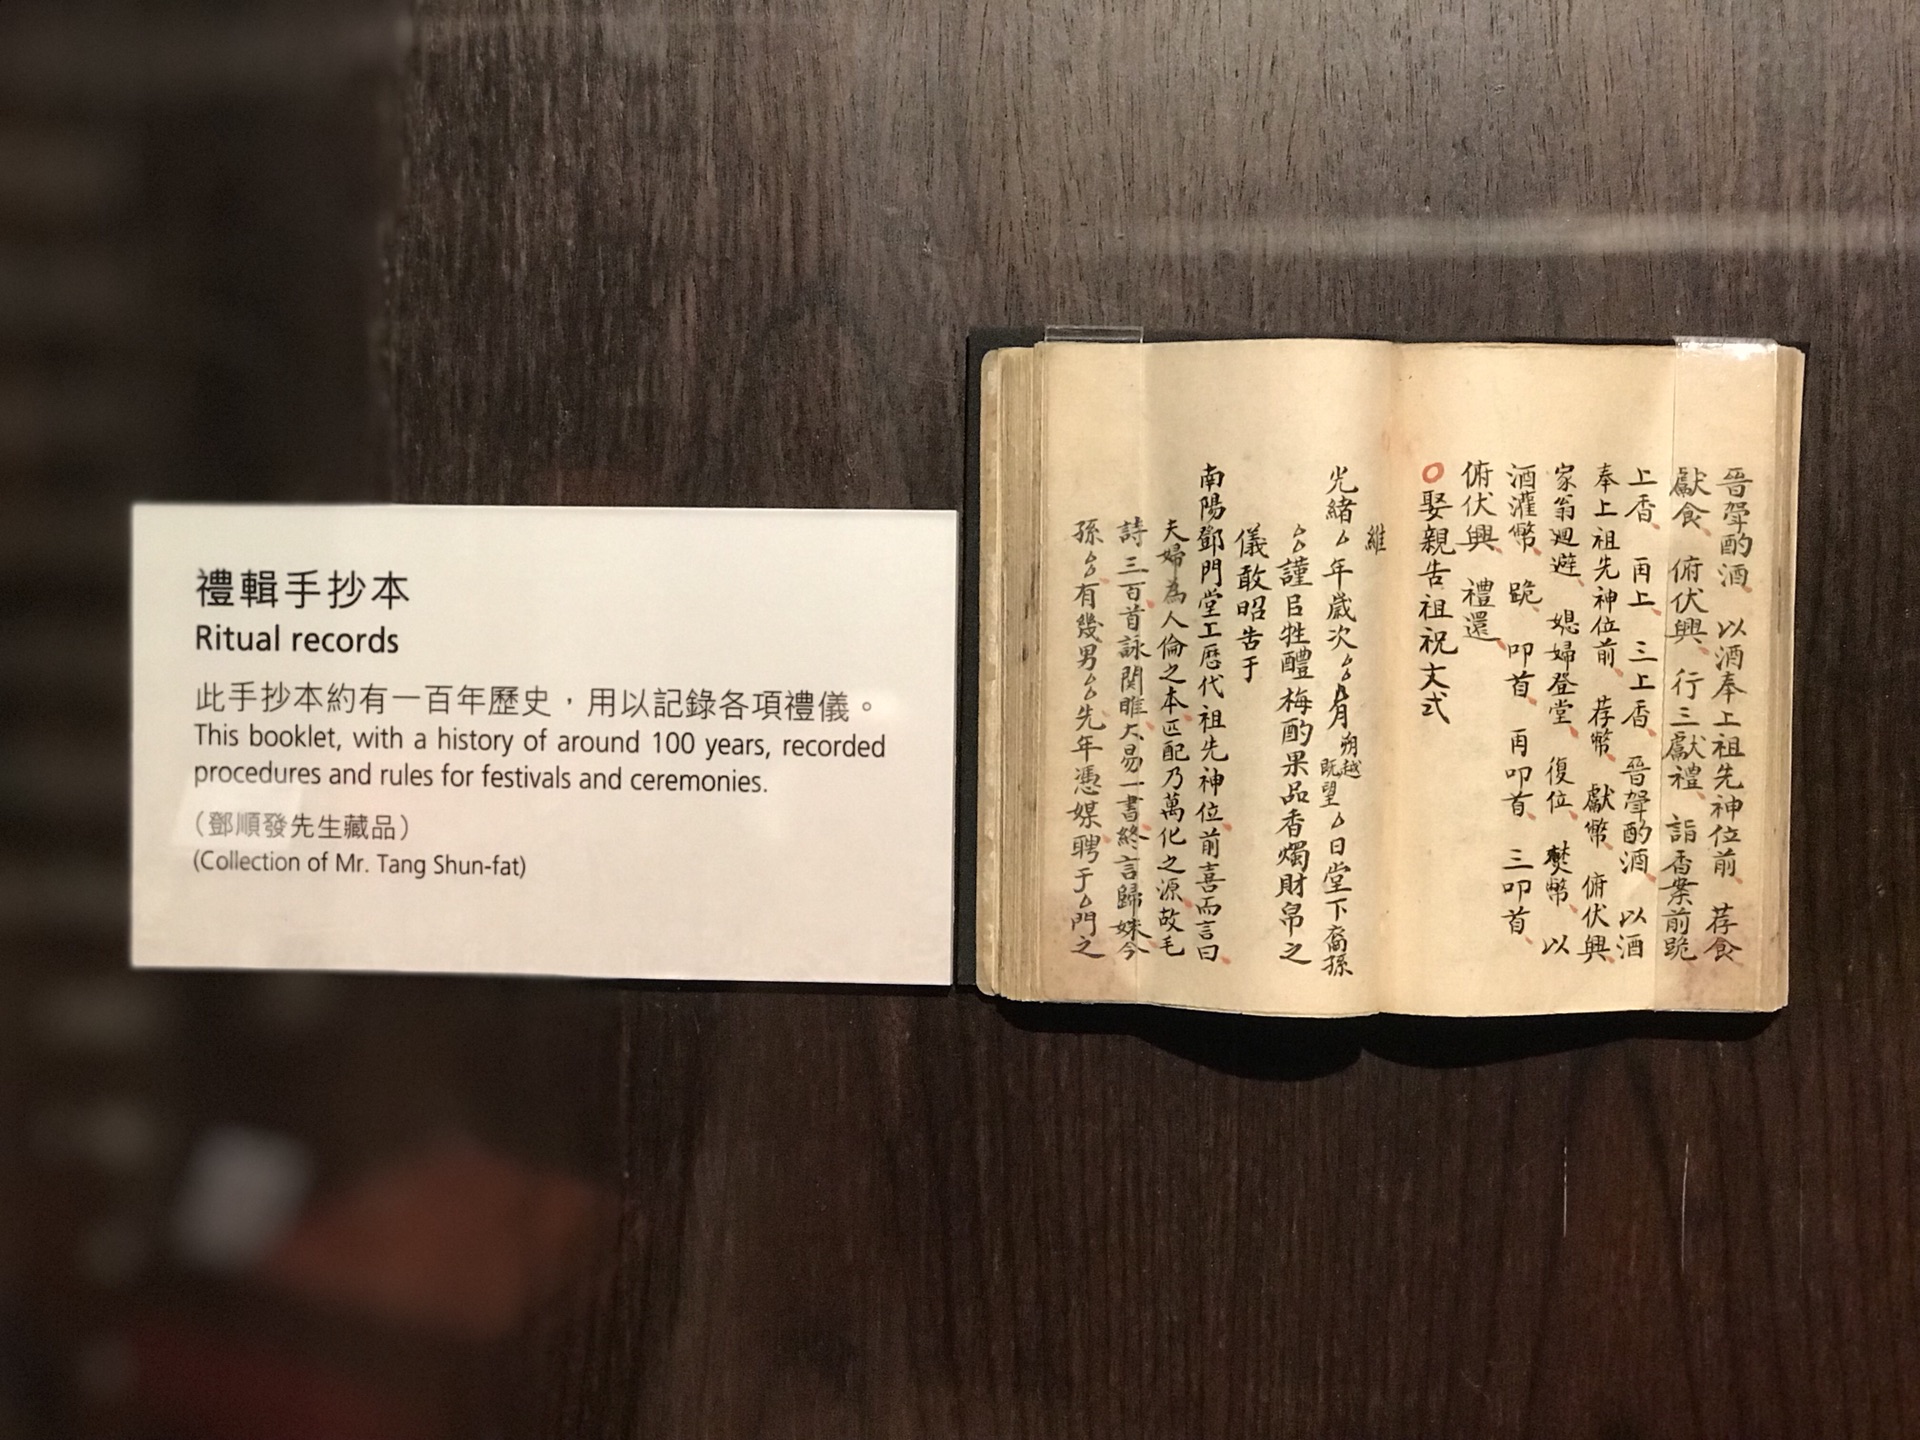 禮輯手抄本
Ritual records
此手抄本約有一百年歷史，用以記錄各項禮儀。
This booklet, with a history of around 100 years, recorded
procedures and rules for festivals and ceremonies.
（鄧順發先生藏品）
(Collection of Mr. Tang Shun-fat)
晉斝酌酒 以酒奉上祖先神位前 荐食
獻食 俯伏興 行三獻禮 詣香案前跪
上香 再上 三上香 晉斝酌酒 以酒
奉上祖先神位前 荐幣 獻幣 俯伏興
家翁廻避 媳婦登堂 復位 焚幣 以
酒灌幣 跪 叩首 再叩首 三叩首
俯伏興 禮還
娶親告祖祝文式
維
光緒 年歲次 月 朔越 既望 日堂下裔孫
謹㠯牲醴梅酌果品香燭財帛之
儀敢昭告于
南陽鄧門堂上歷代祖先神位前喜而言曰
夫婦為人倫之本匹配乃萬化之源故毛
詩三百首詠関睢大易一書終言歸妹今
孫 有幾男 先年憑媒聘于 門之